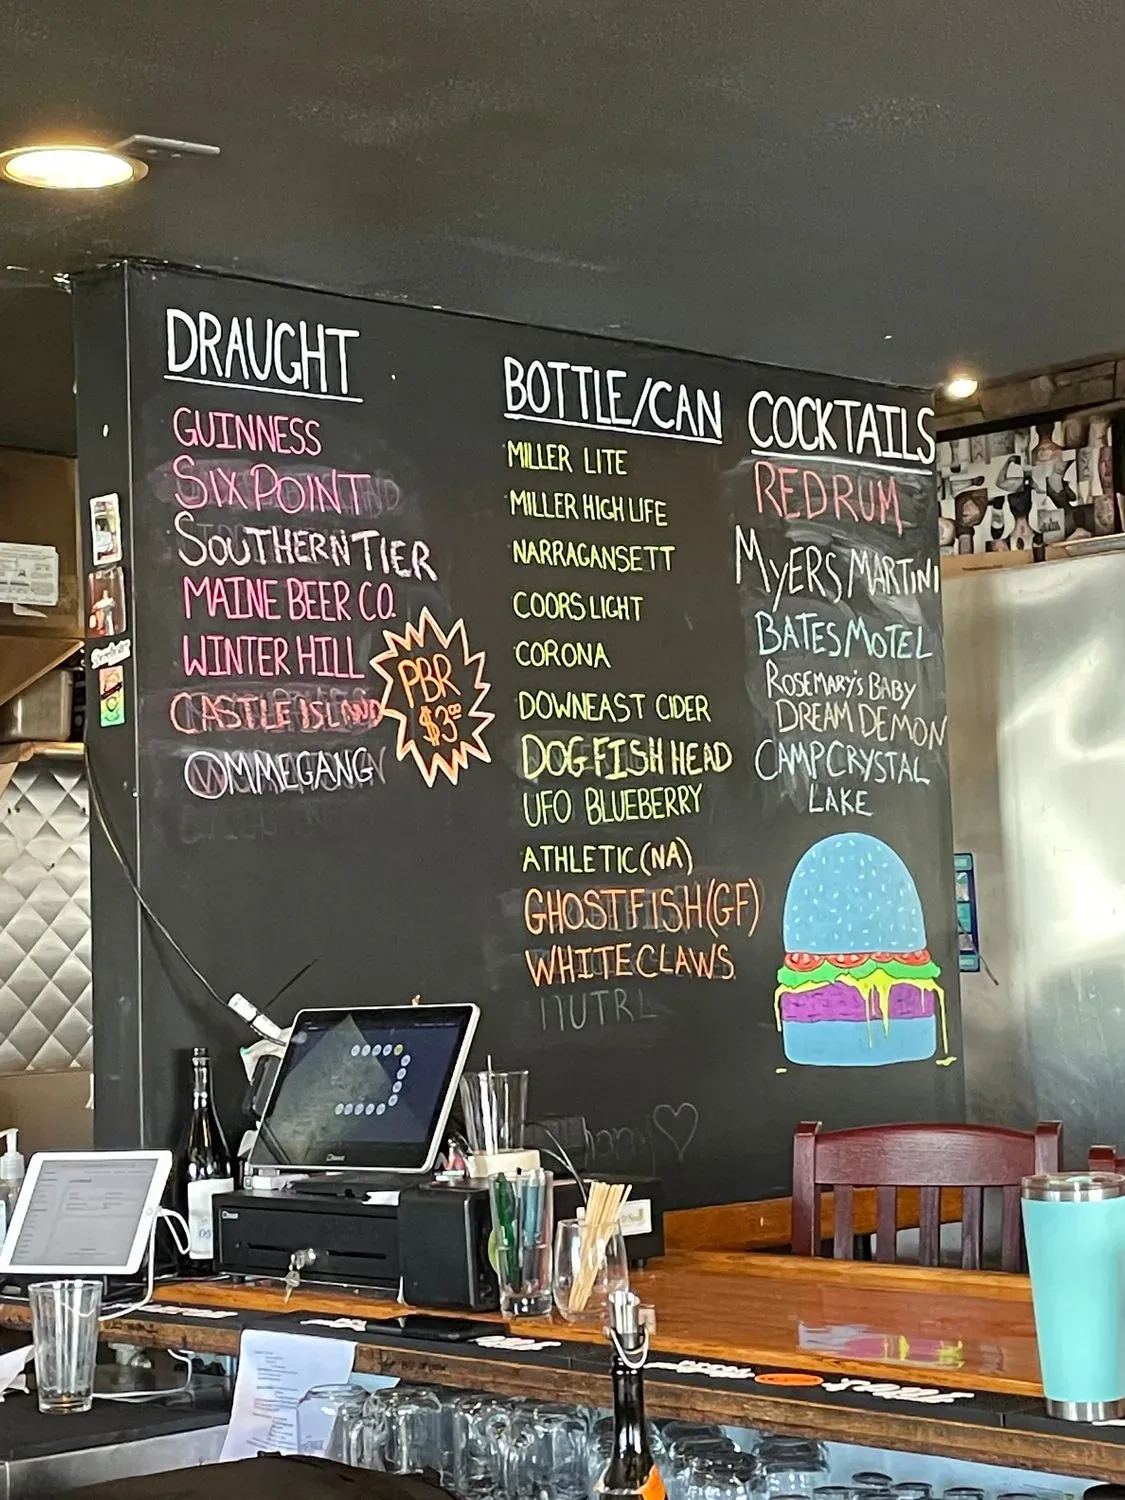 DRAUGHT
GUINNESS
SIXPOINT
SOUTHERN TIER
MAINE BEER CO.
WINTER HILL
CASTLE ISLAND
OMMEGANG
PBR
$3.00
BOTTLE/CAN
MILLER LITE
MILLER HIGH LIFE
NARRAGANSETT
COORS LIGHT
CORONA
DOWNEAST CIDER
DOGFISH HEAD
UFO BLUEBERRY
ATHLETIC (NA)
GHOSTFISH (GF)
WHITE CLAWS
NUTRL
COCKTAILS
REDRUM
MYERS MARTINI
BATES MOTEL
ROSEMARY'S BABY
DREAM DEMON
CAMP CRYSTAL
LAKE